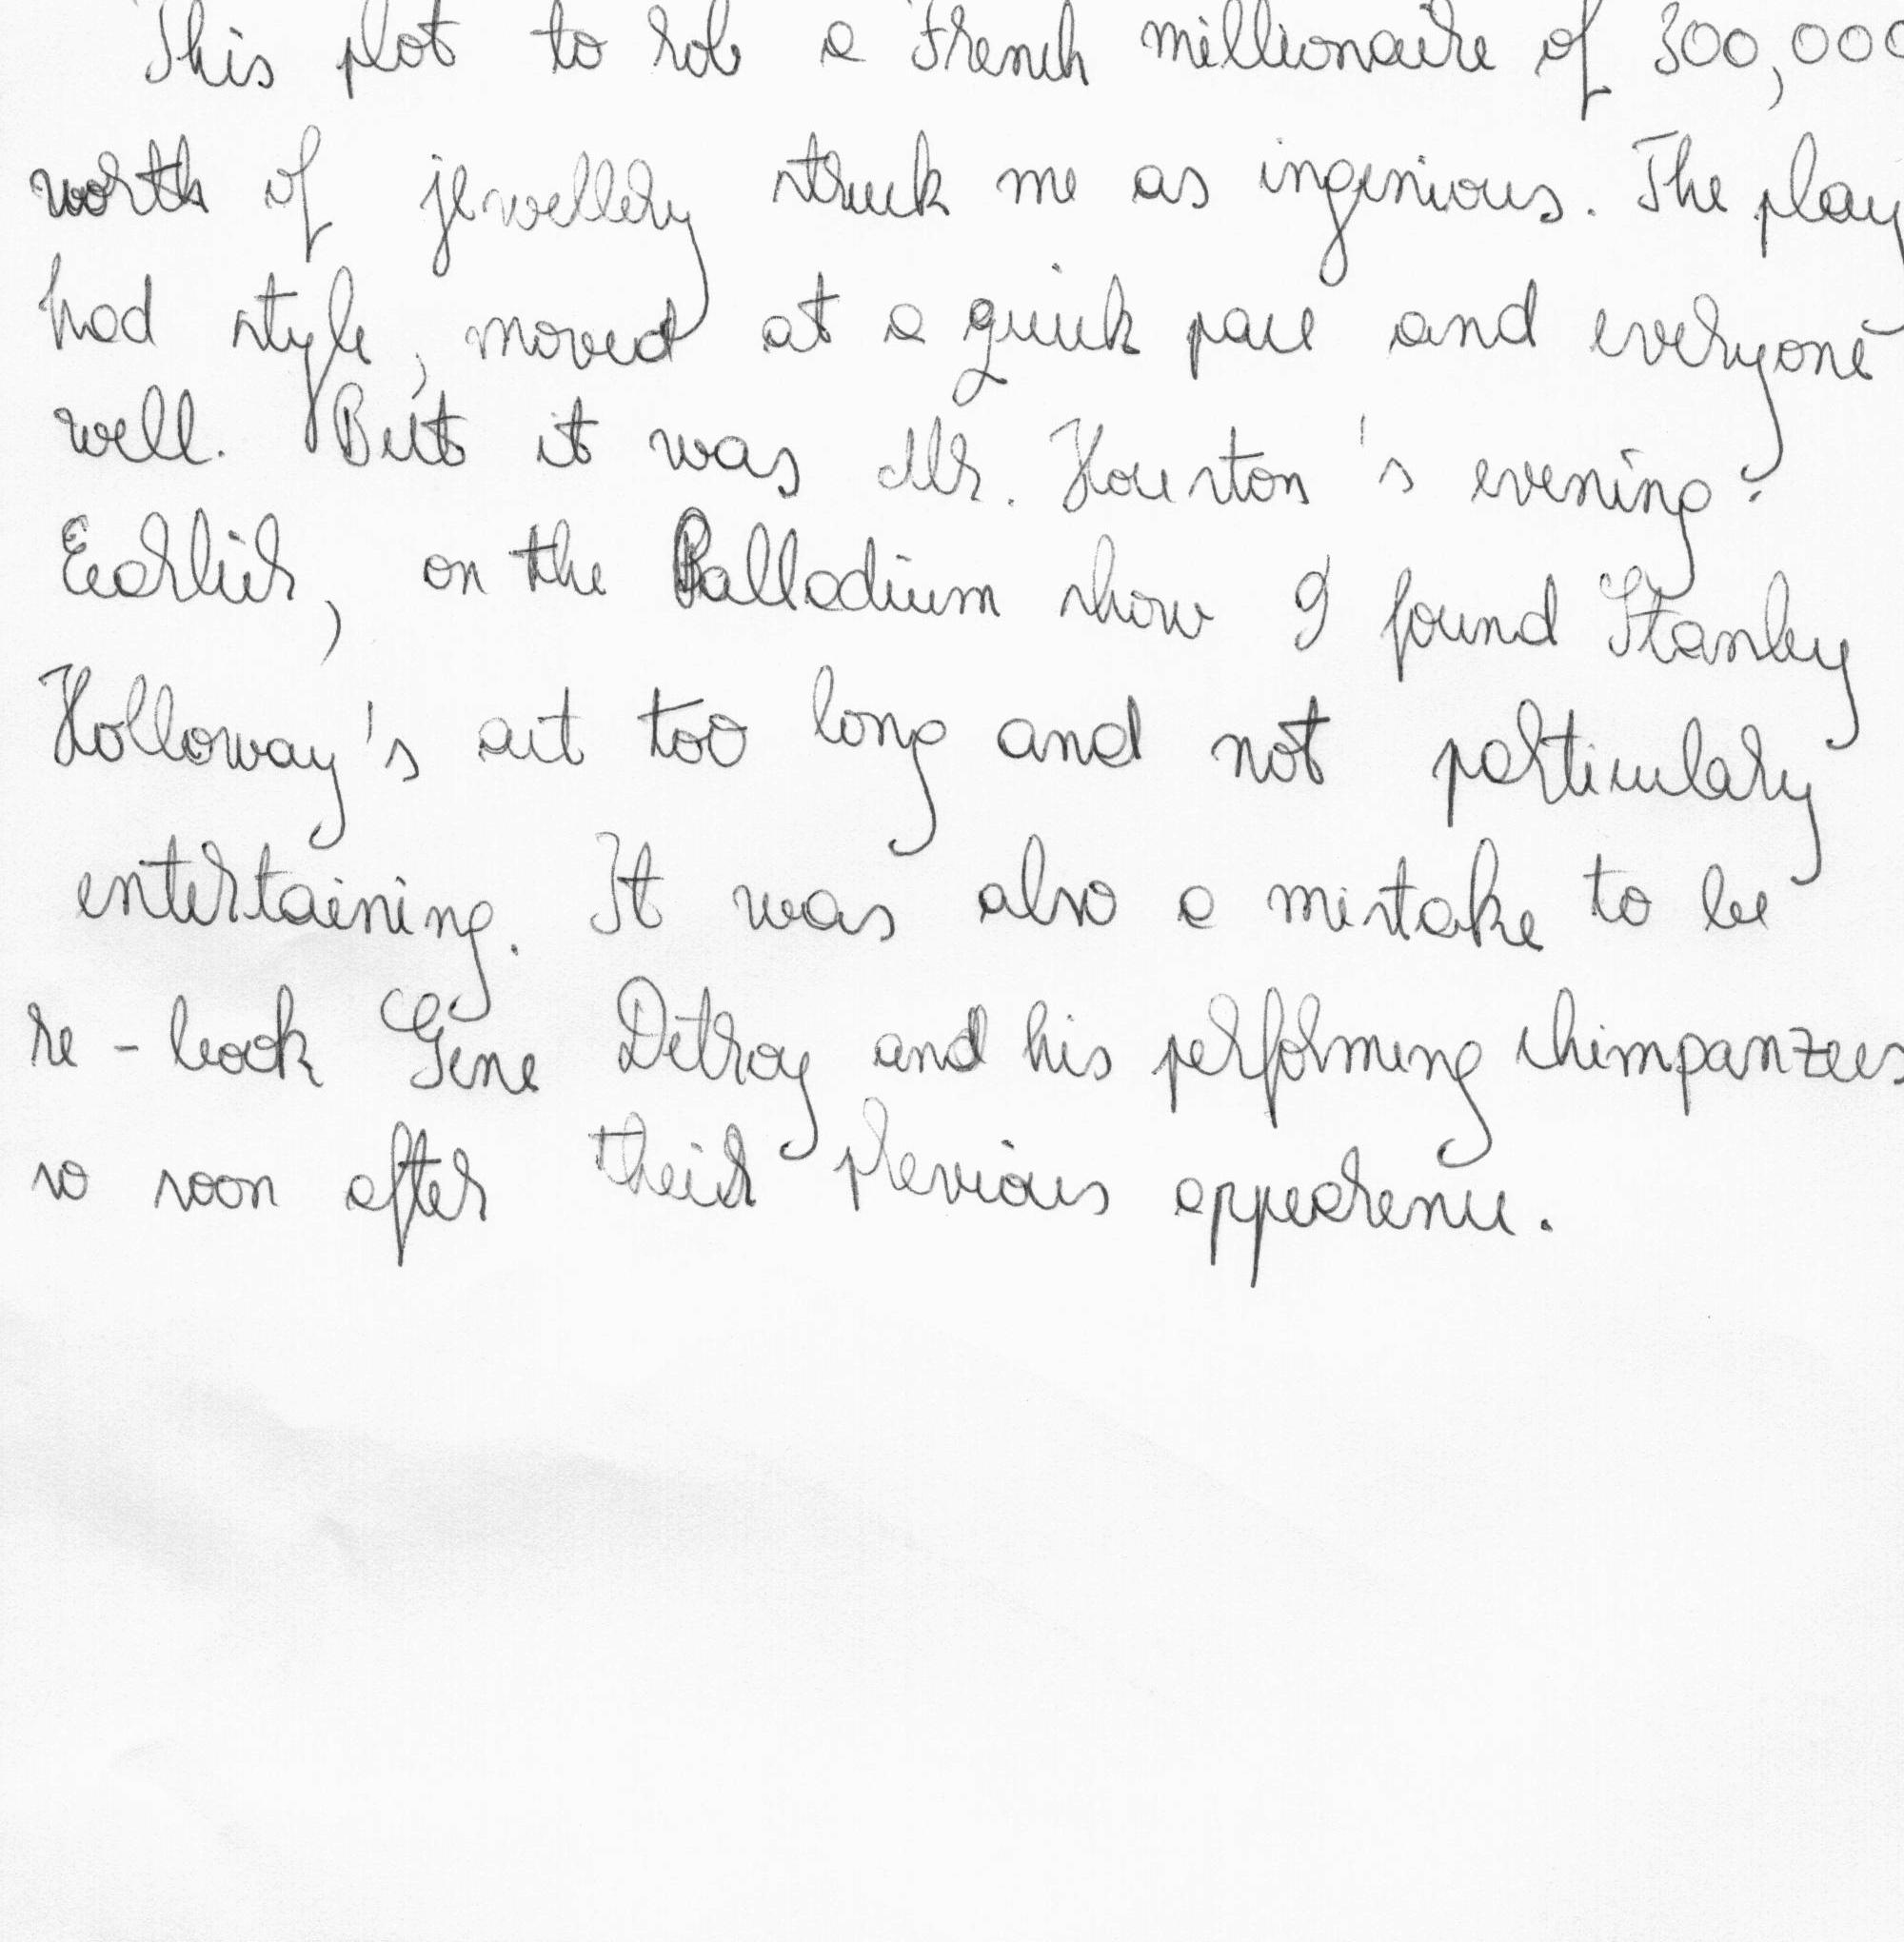 This plot to rob a French millionaire of 300,000
worth of jewellery struck me as ingenious. The play
had style, moved at a quick pace and everyone
well. But it was Mr. Houston's evening.
Earlier, on the Palladium show I found Stanley
Holloway's act too long and not particulary
entertaining. It was also a mistake to be
re-book Gene Detroy and his performing chimpanzees
so soon after their previous appearence.